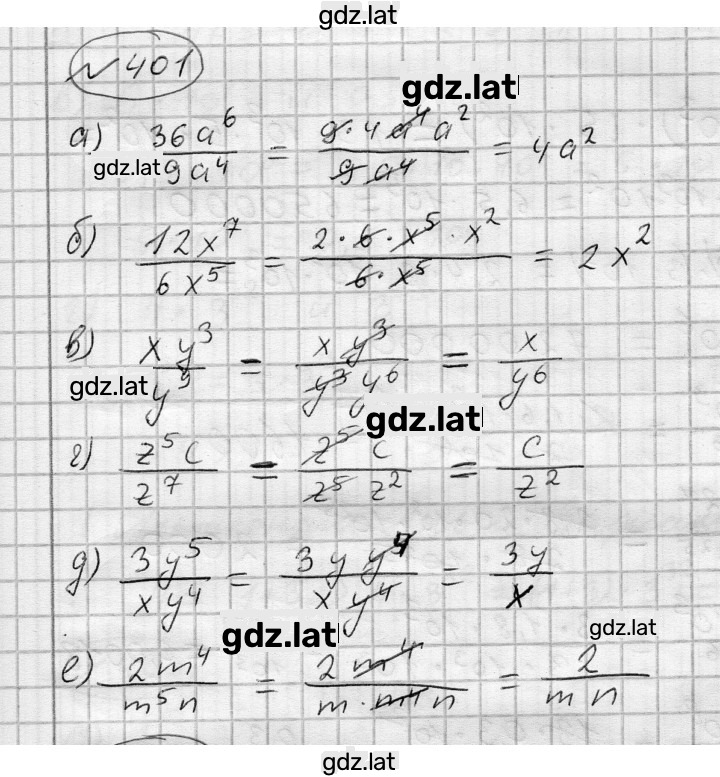 gdz.lat
№ 401
gdz.lat
а) 36a⁶/9a⁴ = 9·4a⁴a²/9a⁴ = 4a²
gdz.lat
б) 12x⁷/6x⁵ = 2·6·x⁵·x²/6·x⁵ = 2x²
в) xy³/y⁹ = xy³/y³y⁶ = x/y⁶
gdz.lat
gdz.lat
г) z⁵c/z⁷ = z⁵c/z⁵z² = c/z²
д) 3y⁵/xy⁴ = 3yy⁴/xy⁴ = 3y/x
gdz.lat
gdz.lat
е) 2m⁴/m⁵n = 2m⁴/m·m⁴n = 2/mn
gdz.lat